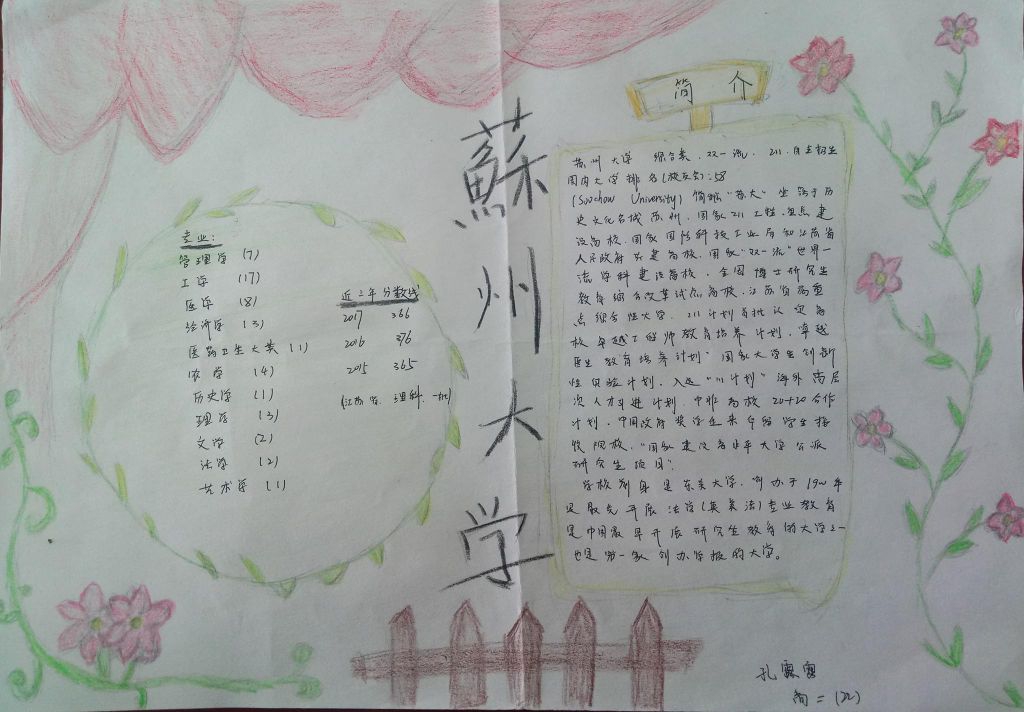 蘇州大学
专业:
管理学 (7)
工学 (17)
医学 (8)
经济学 (3)
医药卫生大类 (1)
农学 (4)
历史学 (1)
理学 (3)
文学 (2)
法学 (2)
艺术学 (1)
近三年分数线
2017 366
2016 376
2015 365
(江苏省、理科、一批)
简介
苏州大学 综合类、双一流、211、自主招生
国内大学排名(校友会):58
(Soochow University) 简称"苏大" 坐落于历
史文化名城苏州,国家211工程重点建
设高校,国家国防科技工业局和江苏省
人民政府共建高校,国家"双一流"世界一
流学科建设高校,全国博士研究生
教育综合改革试点高校,江苏省属重
点综合性大学,211计划首批认定高
校,卓越工程师教育培养计划,卓越
医生教育培养计划,国家大学生创新
性实验计划,入选"111计划"海外高层
次人才引进计划,中非高校20+20合作
计划,中国政府奖学金来华留学生接
收院校,"国家建设高水平大学公派
研究生项目"。
学校前身是东吴大学,创办于1900年
是最先开展法学(英美法)专业教育
是中国最早开展研究生教育的大学之一
也是第一家创办学报的大学。
孔露
高二(22)